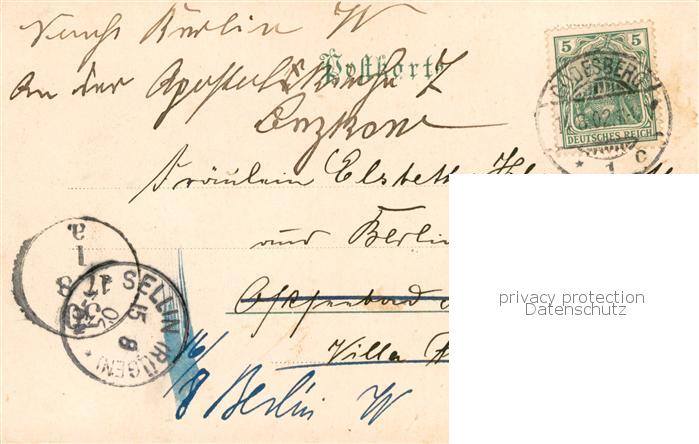 Nach Berlin W
An der Apostelkirche 7
Postkarte
Buzkow
5 5
GODESBERG
DEUTSCHES REICH
1 c
Fräulein Elsbeth
aus Berlin
Ostseebad
Villa
SELLIN (RÜGEN)
15 8
a
1
17 8
16/8 Berlin W
privacy protection
Datenschutz